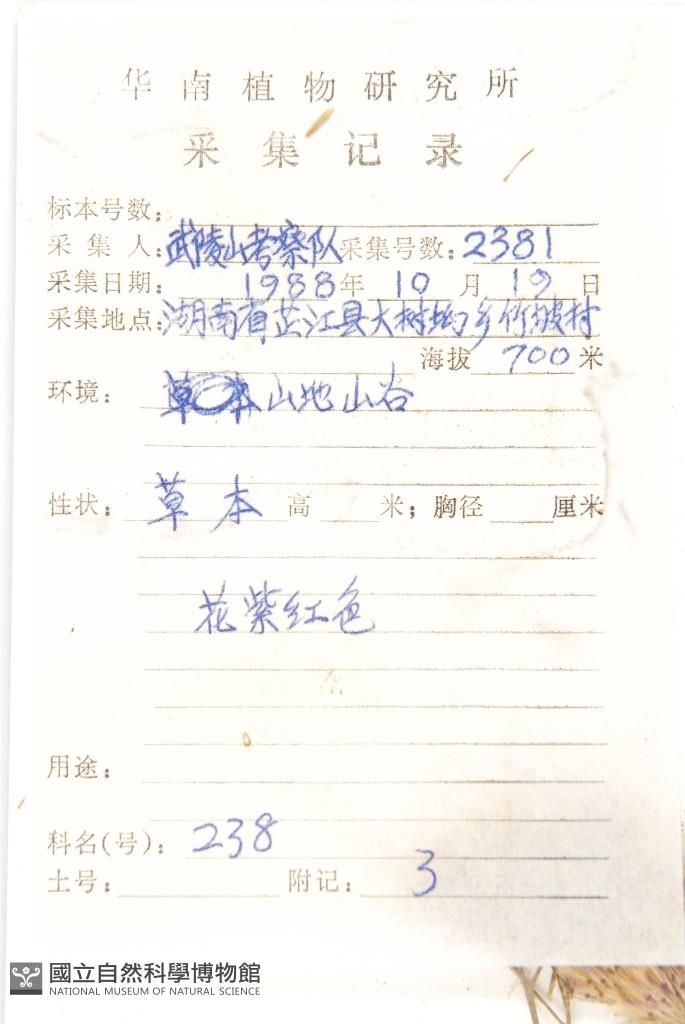 华南植物研究所
采集记录
标本号数:
采集人: 武陵山考察队 采集号数: 2381
采集日期: 1988年10月19日
采集地点: 湖南省芷江县大树坳乡竹坡村
海拔 700 米
环境: 山地山谷
性状: 草本 高 米; 胸径 厘米
花紫红色
用途:
科名(号): 238
土号: 附记: 3
國立自然科學博物館
NATIONAL MUSEUM OF NATURAL SCIENCE